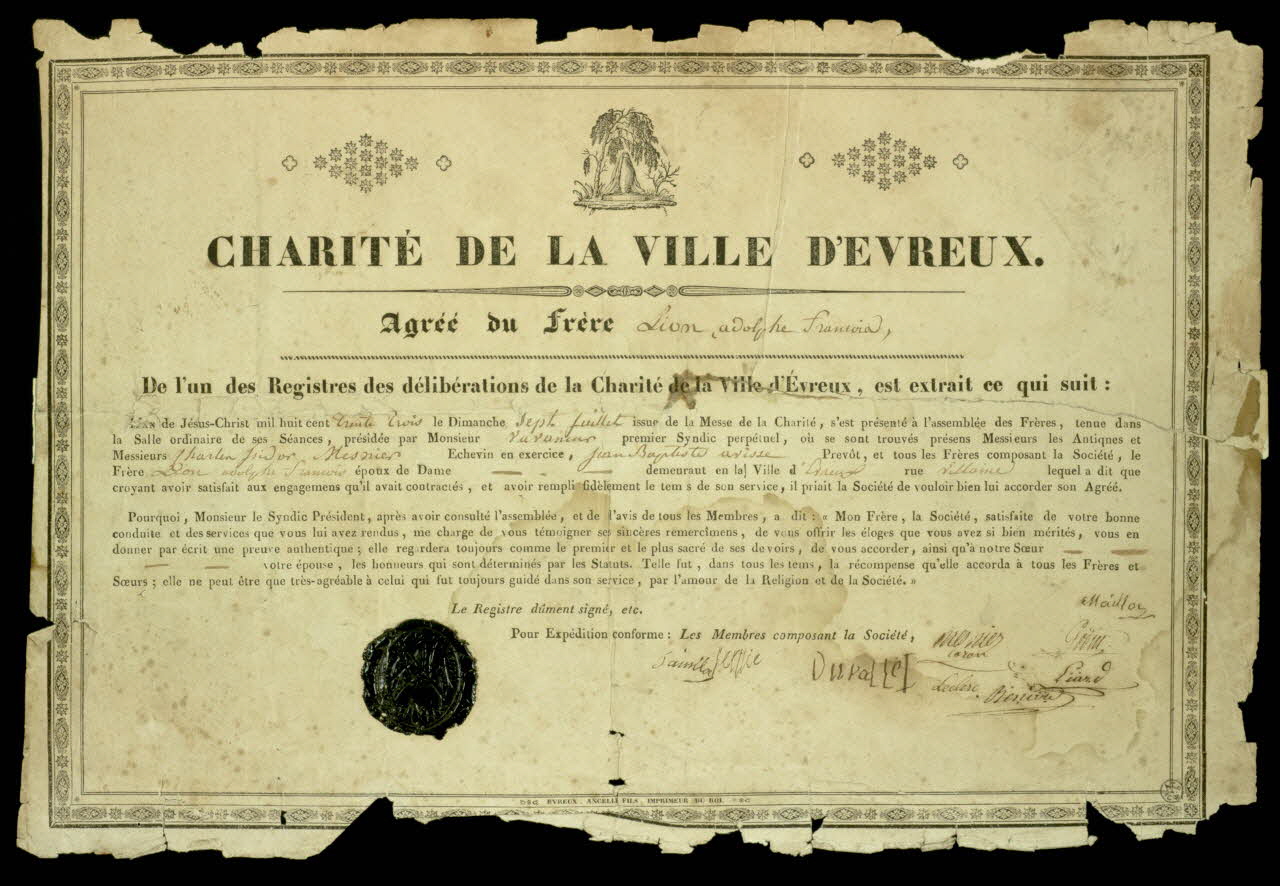 CHARITÉ DE LA VILLE D'EVREUX.
Agréé du Frère Léon, adolphe Francois,
De l'un des Registres des délibérations de la Charité de la Ville d'Évreux, est extrait ce qui suit :
L'An de Jésus-Christ mil huit cent trente trois le Dimanche Sept Juillet issue de la Messe de la Charité, s'est présenté à l'assemblée des Frères, tenue dans
la Salle ordinaire de ses Séances, présidée par Monsieur premier Syndic perpétuel, où se sont trouvés présens Messieurs les Antiques et
Messieurs Charles Isidor Mesnier Echevin en exercice, Jean Baptiste avisse Prevôt, et tous les Frères composant la Société, le
Frère Léon adolphe Francois époux de Dame — — — demeuraut en la Ville d'Evreux rue lequel a dit que
croyant avoir satisfait aux engagemens qu'il avait contractés, et avoir rempli fidèlement le tem s de son service, il priait la Société de vouloir bien lui accorder son Agréé.
Pourquoi, Monsieur le Syndic Président, après avoir consulté l'assemblée, et de l'avis de tous les Membres, a dit : « Mon Frère, la Société, satisfaite de votre bonne
conduite et des services que vous lui avez rendus, me charge de vous témoigner ses sincères remercîmens, de vous offrir les éloges que vous avez si bien mérités, vous en
donner par écrit une preuve authentique ; elle regardera toujours comme le premier et le plus sacré de ses devoirs, de vous accorder, ainsi qu'à notre Sœur — —
— — votre épouse, les honneurs qui sont déterminés par les Statuts. Telle fut, dans tous les tems, la récompense qu'elle accorda à tous les Frères et
Sœurs ; elle ne peut être que très-agréable à celui qui fut toujours guidé dans son service, par l'amour de la Religion et de la Société. »
Le Registre dûment signé, etc.
Pour Expédition conforme : Les Membres composant la Société,
Mesnier
caron
Duvallet
Leclerc
Piard
EVREUX, ANCELLE FILS, IMPRIMEUR DU ROI.